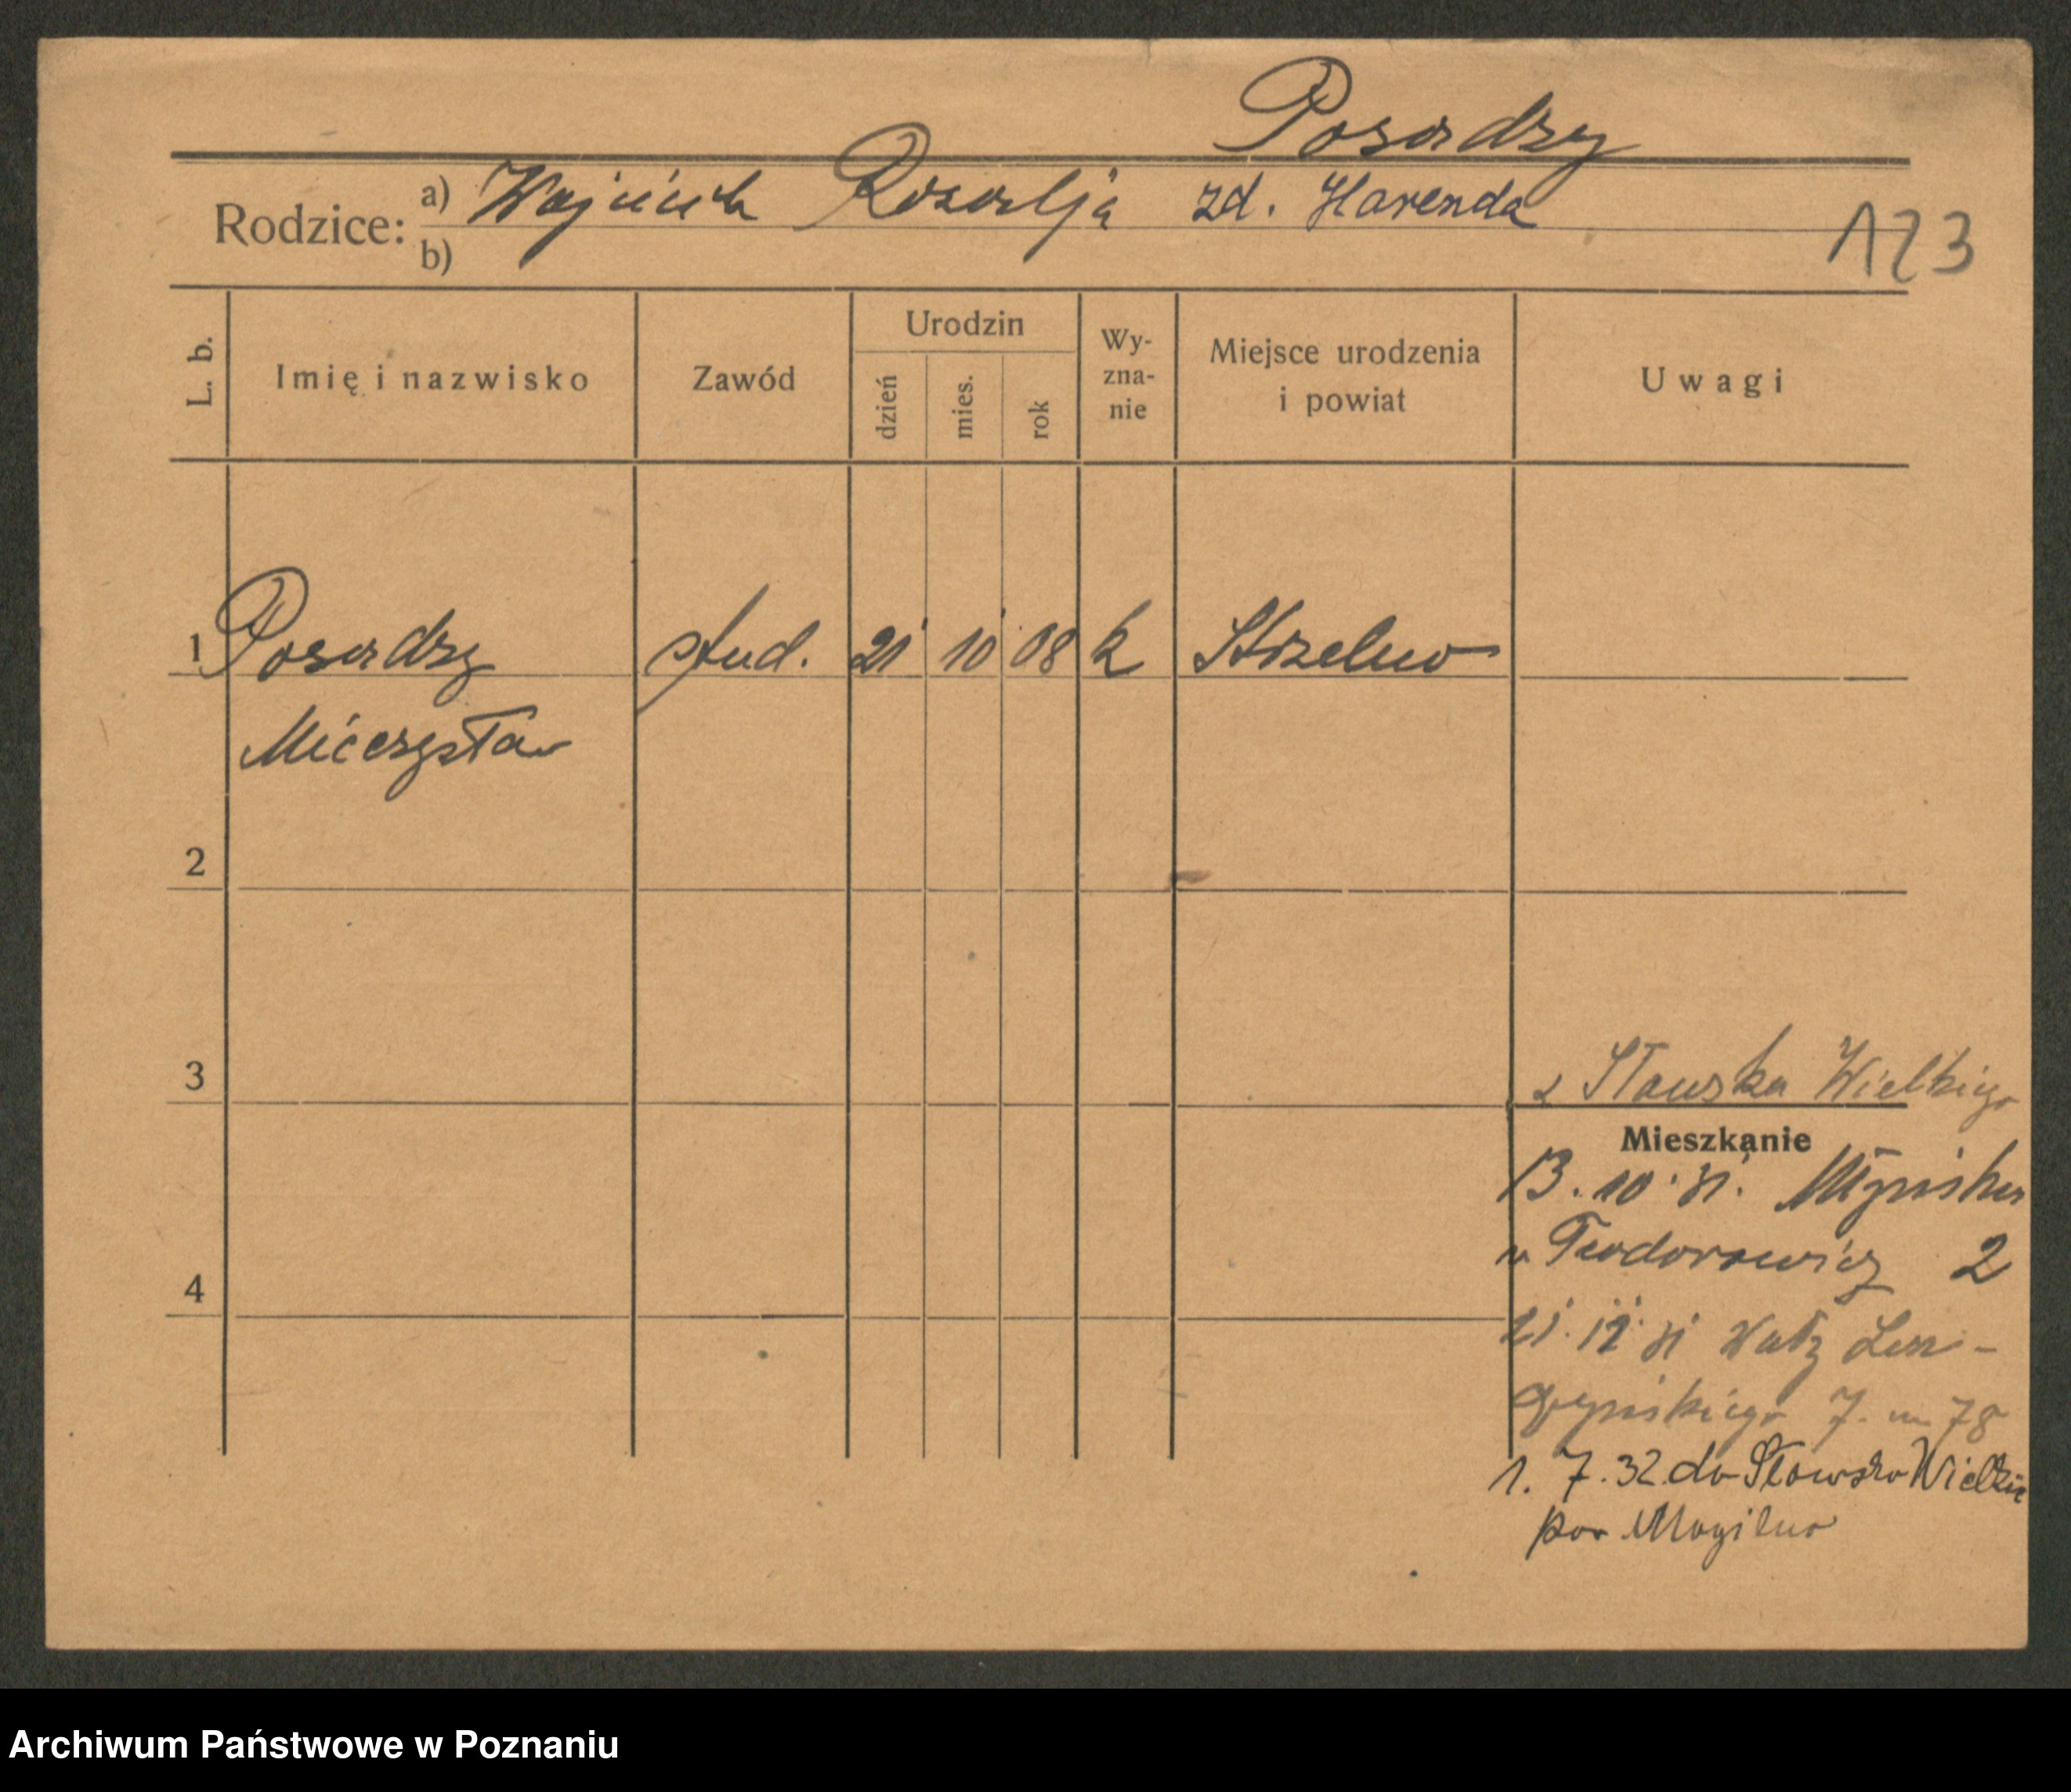 Posadzy
Rodzice: a) Wojciech Rozalja zd. Harenda
b)
123
L. b. Imię i nazwisko Zawód Urodzin dzień mies. rok Wy-zna-nie Miejsce urodzenia i powiat Uwagi
1 Posadzy stud. 21 10 08 k Strzelno
Mieczysław
2
3
z Sławska Wielkiego
Mieszkanie
13. 10. 31. Młyńska
u Teodorowicz 2
4
21. 12. 31 Wały Lesz-
czyńskiego 7. m 78
1. 7. 32. do Sławsko Wielkie
pow Mogilno
Archiwum Państwowe w Poznaniu